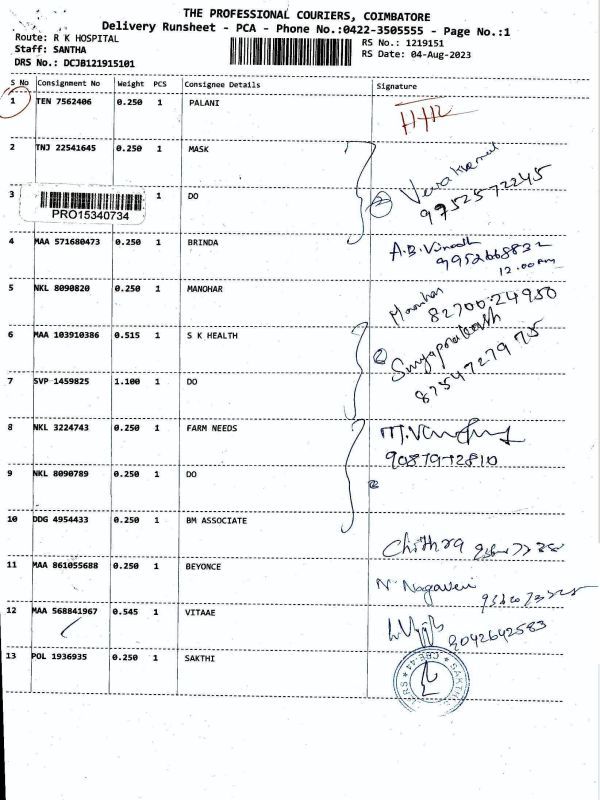 THE PROFESSIONAL COURIERS, COIMBATORE
Delivery Runsheet - PCA - Phone No.:0422-3505555 - Page No.:1
Route: R K HOSPITAL
Staff: SANTHA
DRS No.: DCJB121915101
RS No.: 1219151
RS Date: 04-Aug-2023
S No Consignment No Weight PCS Consignee Details Signature
1 TEN 7562406 0.250 1 PALANI
2 TNJ 22541645 0.250 1 MASK
3 PRO15340734 1 DO
9752572245
4 MAA 571680473 0.250 1 BRINDA A.B. Vinoth
9952668832
12.00 pm
5 NKL 8090820 0.250 1 MANOHAR Manohar
82700 24950
6 MAA 103910386 0.515 1 S K HEALTH Suryaprakash
87547279 75
7 SVP 1459825 1.100 1 DO
8 NKL 3224743 0.250 1 FARM NEEDS
9 NKL 8090789 0.250 1 DO
10 DDG 4954433 0.250 1 BM ASSOCIATE Chithra
11 MAA 861055688 0.250 1 BEYONCE N. Nagaveni
12 MAA 568841967 0.545 1 VITAAE 9042642583
13 POL 1936935 0.250 1 SAKTHI